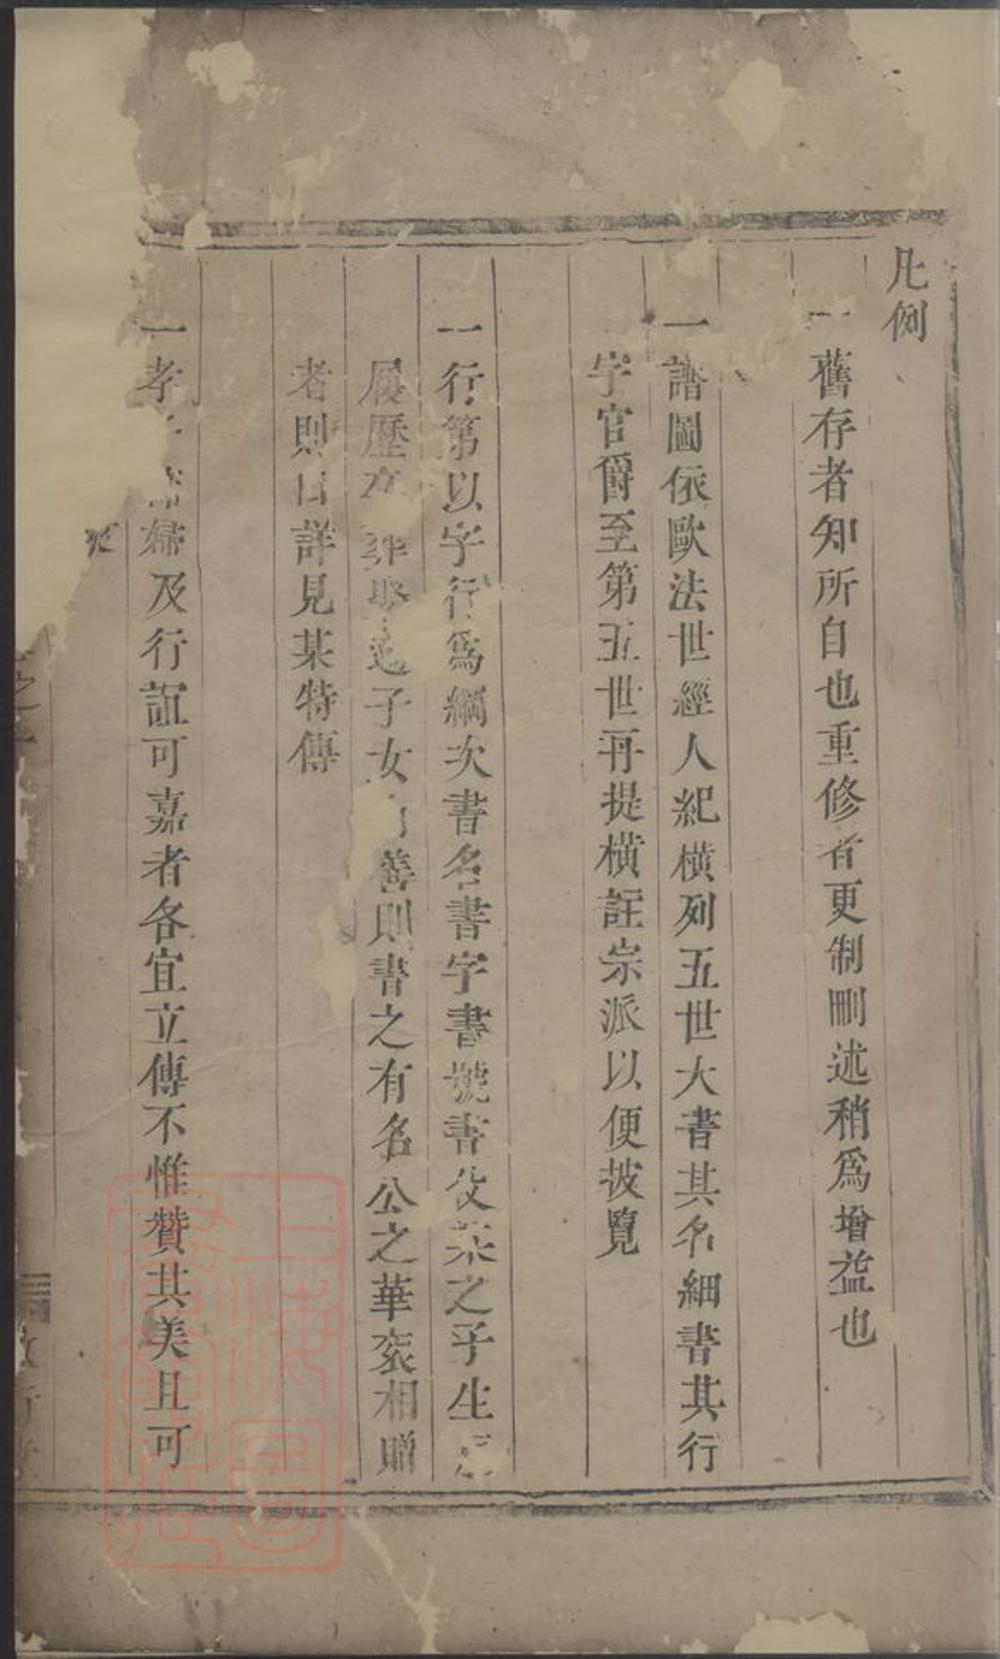 凡例
一舊存者知所自也重修者更制刪述稍爲增益也
一譜圖依歐法世經人紀橫列五世大書其名細書其行
字官爵至第五世再提橫註宗派以便披覽
一行第以字行爲綱次書名書字書號書父某之子生
履歷 葬娶 子女 善則書之有名公之華衮相贈
者則曰詳見某特傳
一孝 婦及行誼可嘉者各宜立傳不惟贊其美且可